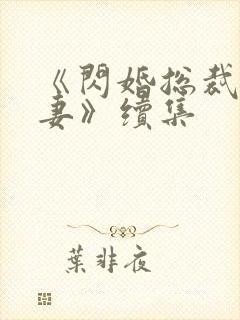 《閃婚總裁
妻》續集
葉非夜